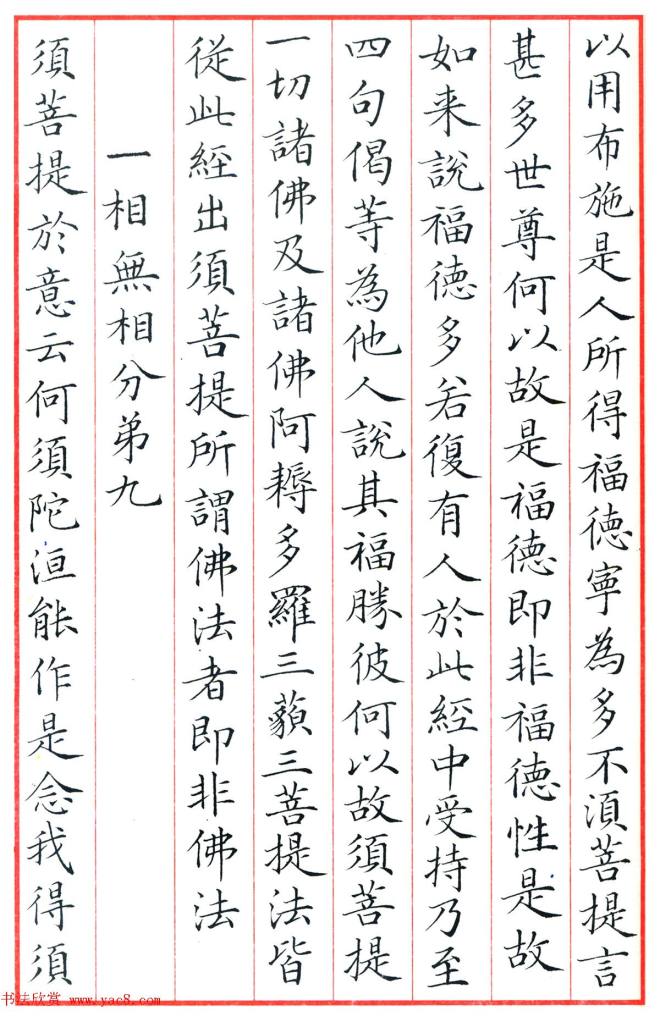 以用布施是人所得福德寧為多不須菩提言
甚多世尊何以故是福德即非福德性是故
如来說福德多若復有人於此經中受持乃至
四句偈等為他人說其福勝彼何以故須菩提
一切諸佛及諸佛阿耨多羅三藐三菩提法皆
從此經出須菩提所謂佛法者即非佛法
一相無相分第九
須菩提於意云何須陀洹能作是念我得須
书法欣赏 www.yac8.com